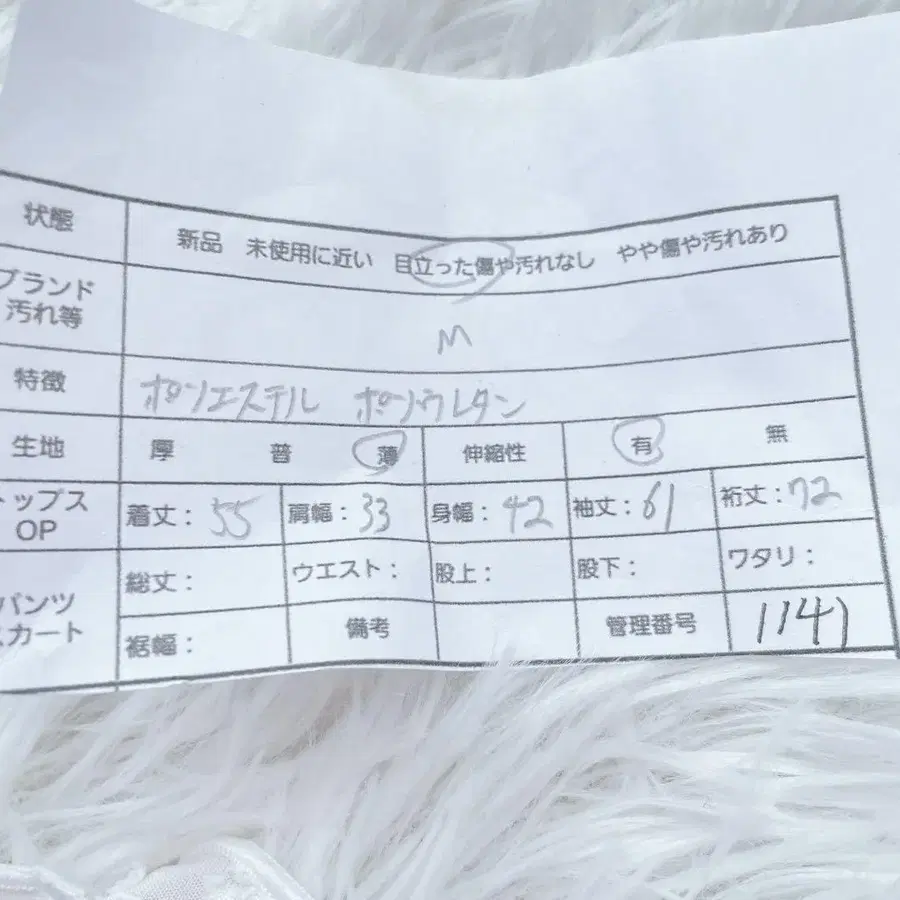 状態 新品 未使用に近い 目立った傷や汚れなし やや傷や汚れあり
ブランド
汚れ等 M
特徴 ポリエステル ポリウレタン
生地 厚 普 薄 伸縮性 有 無
トップス
OP 着丈：55 肩幅：33 身幅：42 袖丈：61 裄丈：72
パンツ
スカート 総丈： ウエスト： 股上： 股下： ワタリ：
裾幅： 備考 管理番号 1147